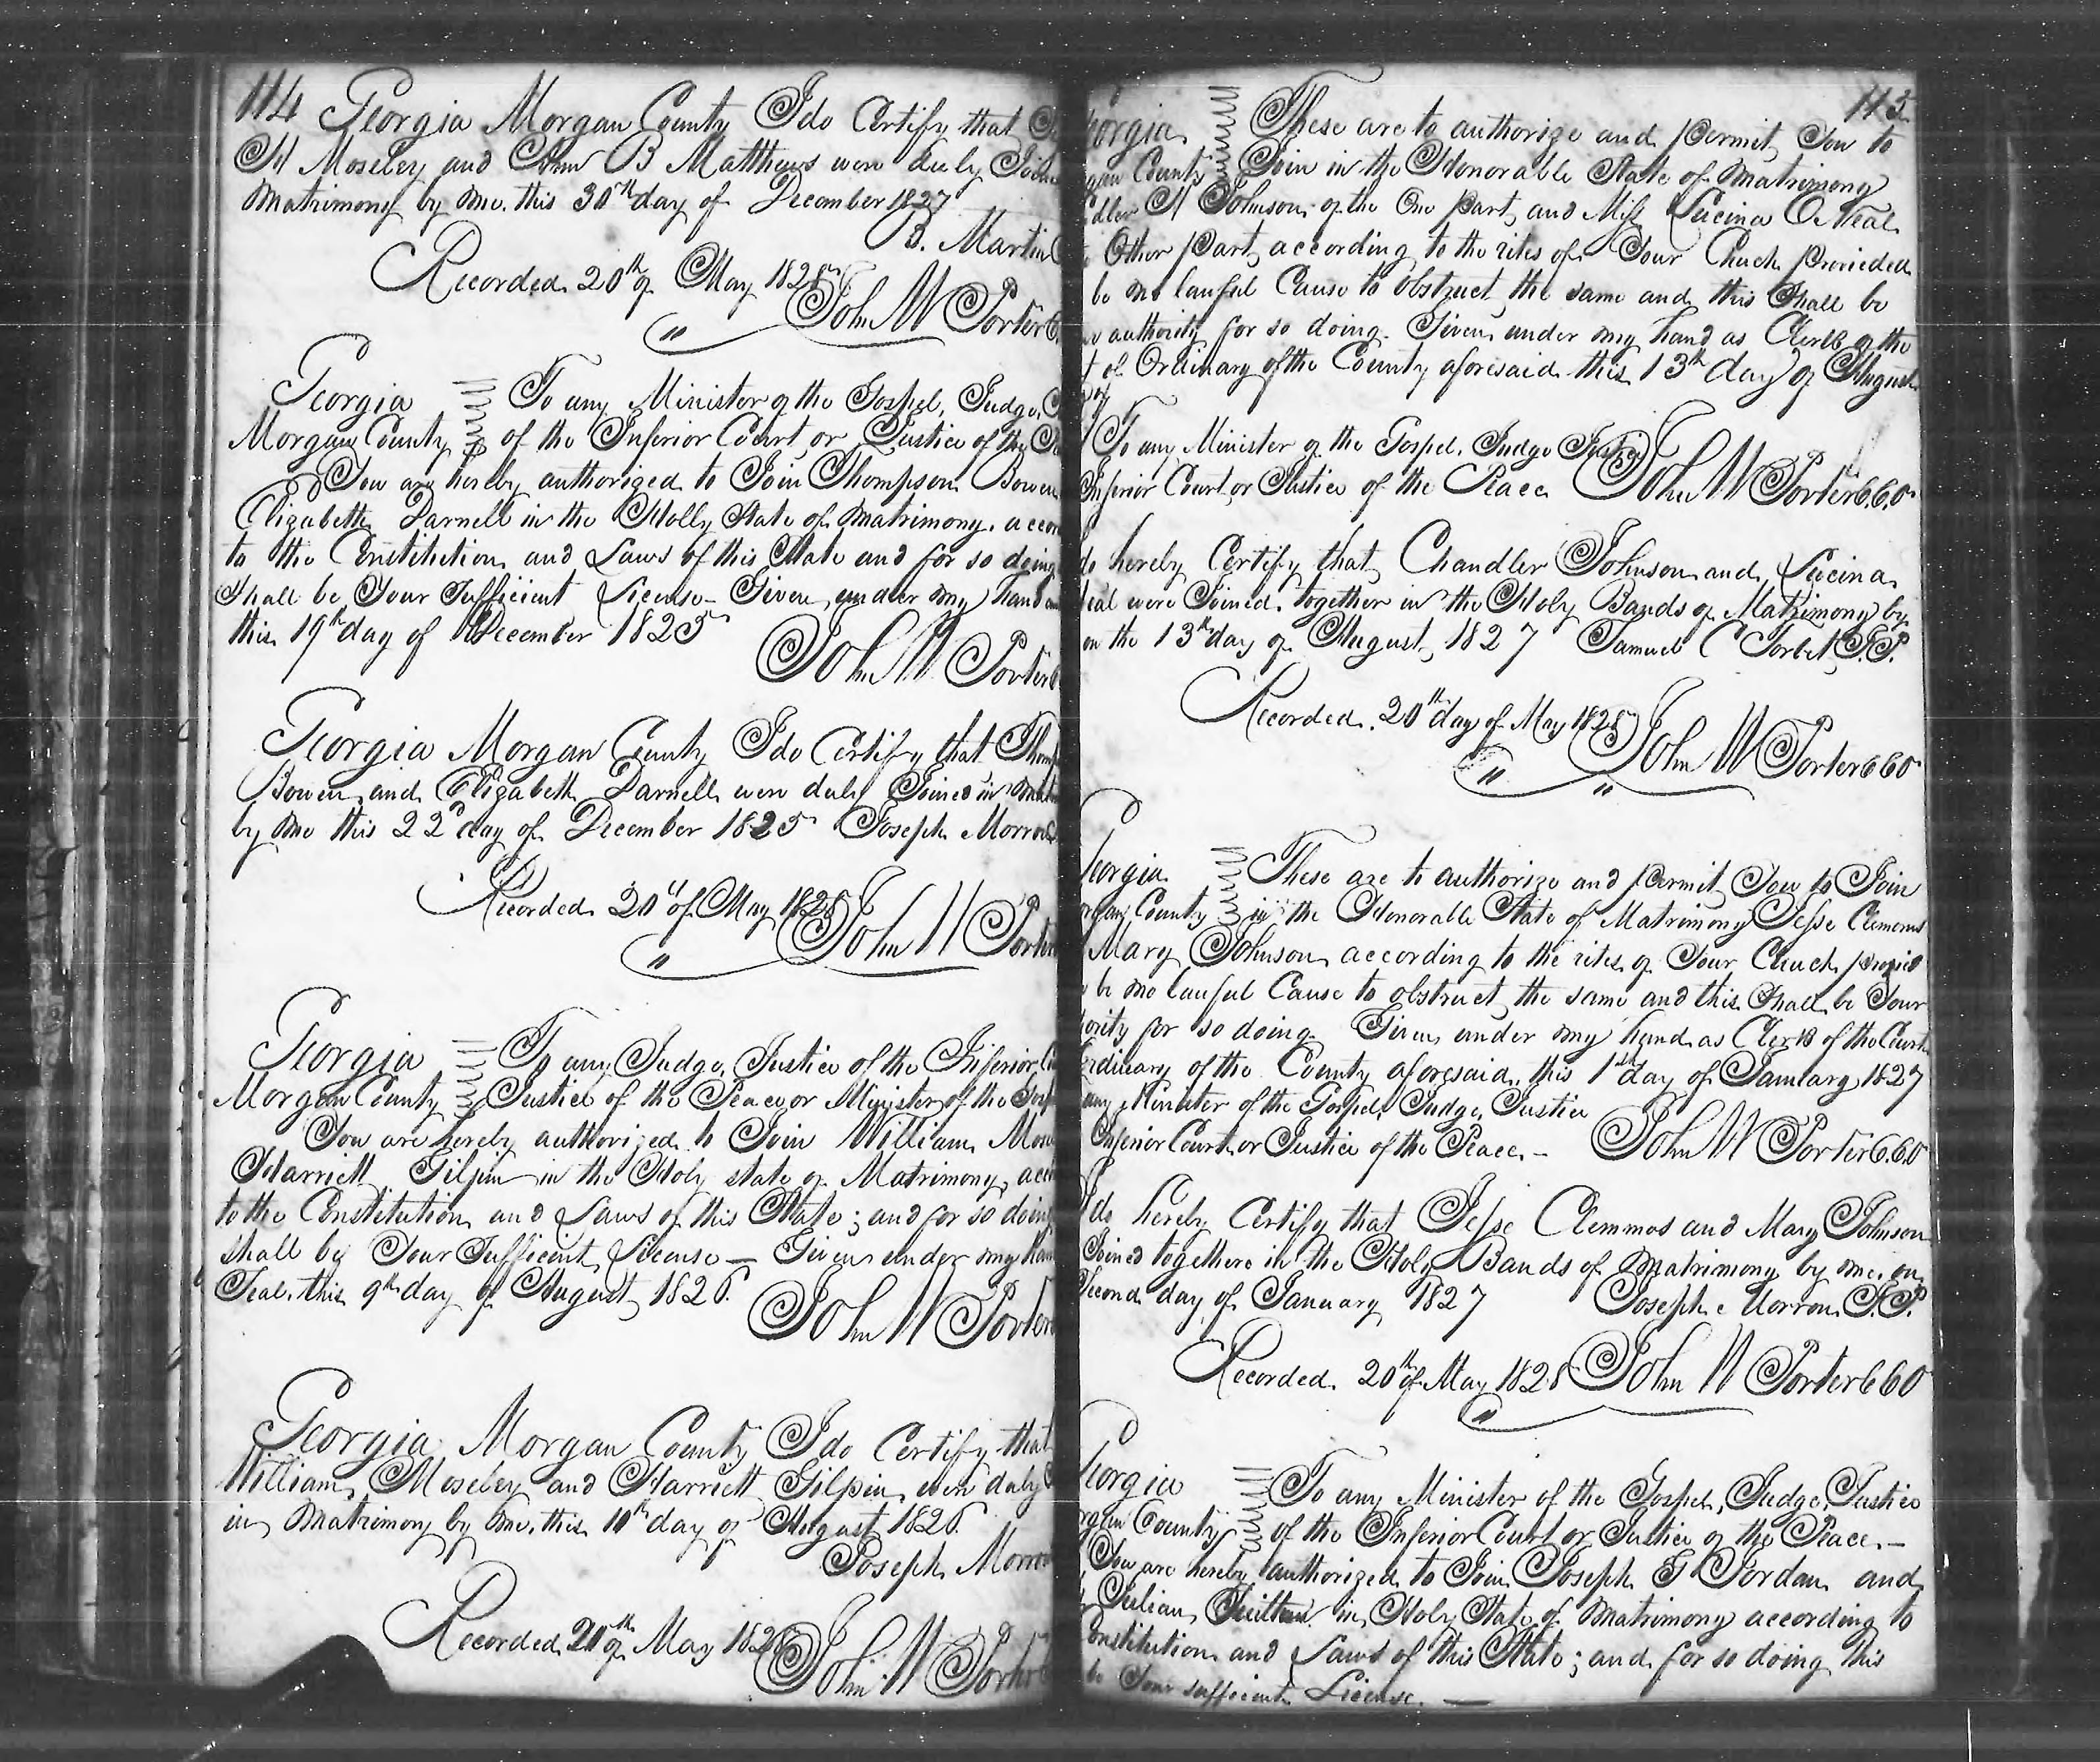 114 Georgia Morgan County I do Certify that
H Moseley and Ann B Matthews were duly Joine
Matrimony by me this 30th day of December 1827
B. Martin
Recorded 20th of May 1828
John W Porter
Georgia To any Minister of the Gospel, Judge,
Morgan County of the Inferior Court or Justice of the
You are hereby authorized to Join Thompson Bowen
Elizabeth Darnell in the Holly State of Matrimony. accor
to the Constitution and Laws of this State and for so doing
Shall be Your Sufficient License- Given under my hand
this 19th day of December 1825
John W Porter
Georgia Morgan County I do Certify that Thomp
Bowen and Elizabeth Darnell were duly Joined in
by me this 22d day of December 1825 Joseph Morrow
Recorded 20th of May 1828
John W Porter
Georgia To any Judge, Justice of the Inferior
Morgan County Justice of the Peace or Minister of the Gosp
You are hereby authorized to Join William Mose
Harriett Gilpin in the Holy state of Matrimony, acco
to the Constitution and Laws of this State; and for so doing
Shall be Your Sufficient License - Given under my han
Seal this 9th day of August 1826.
John W Porter
Georgia Morgan County I do Certify that
William Moseley and Harriett Gilpin were duly
in Matrimony by me, this 10th day of August 1826.
Joseph Morrow
Recorded 20th of May 1828
John W Porter
115
eorgia These are to authorize and permit You to
gan County Join in the Honorable State of Matrimony
dler H Johnson of the One part and Miss Lucina O Neal
Other part according to the rites of Your Chuch provieded
be no lauful Cause to obstruct the same and this Shall be
authority for so doing. Given under my hand as Clerk of the
t of Ordinary of the County aforesaid this 13th day of August
To any Minister of the Gospel, Judge Justice
Inferior Court or Justice of the Peace John W Porter C.C.O
do hereby Certify that Chandler Johnson and Lucina
Neal were Joined together in the Holy Bands of Matrimony by
on the 13th day of August 1827 Samuel C Torbet J.P.
Recorded 20th day of May 1828
John W Porter C C O
Georgia These are to authorize and permit You to Join
organ County in the Honorable State of Matrimony Jesse Clemons
Mary Johnson according to the rites of Your Chuch provied
be no lauful Cause to obstruct the same and this Shall be Your
ority for so doing Given under my hand as Clerk of the Court
rdinary of the County aforesaid this 1st day of January 1827
any Minister of the Gospel, Judge, Justice
Inferior Court or Justice of the Peace. - John W Porter C.C.O
I do hereby Certify that Jesse Clemmos and Mary Johnson
Joined together in the Holy Bands of Matrimony by me, on
Second day of January 1827 Joseph Morrow J.P.
Recorded 20th of May 1828 John W Porter C C O
Georgia To any Minister of the Gospel, Judge, Justice
rgan County of the Inferior Court or Justice of the Peace. -
You are hereby authorized to Join Joseph G Jordan and
Julian in Holy State of Matrimony according to
Constitution and Laws of this State; and for so doing this
be Your sufficient License. -